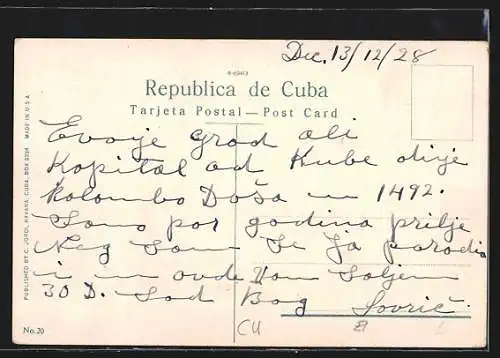 Dec. 13/12/28
Republica de Cuba
Tarjeta Postal — Post Card
Evo je grad ali
Kopital od Kube dije
Kolombo Doša u 1492.
Samo por godina prilje
Neg Sam Se Ja parodio
i u ovde Vam Saljem
30 D. Sad Bog
Sovrič
CU
No. 20
PUBLISHED BY C. JORDI, HAVANA, CUBA, BOX MADE IN U.S.A.